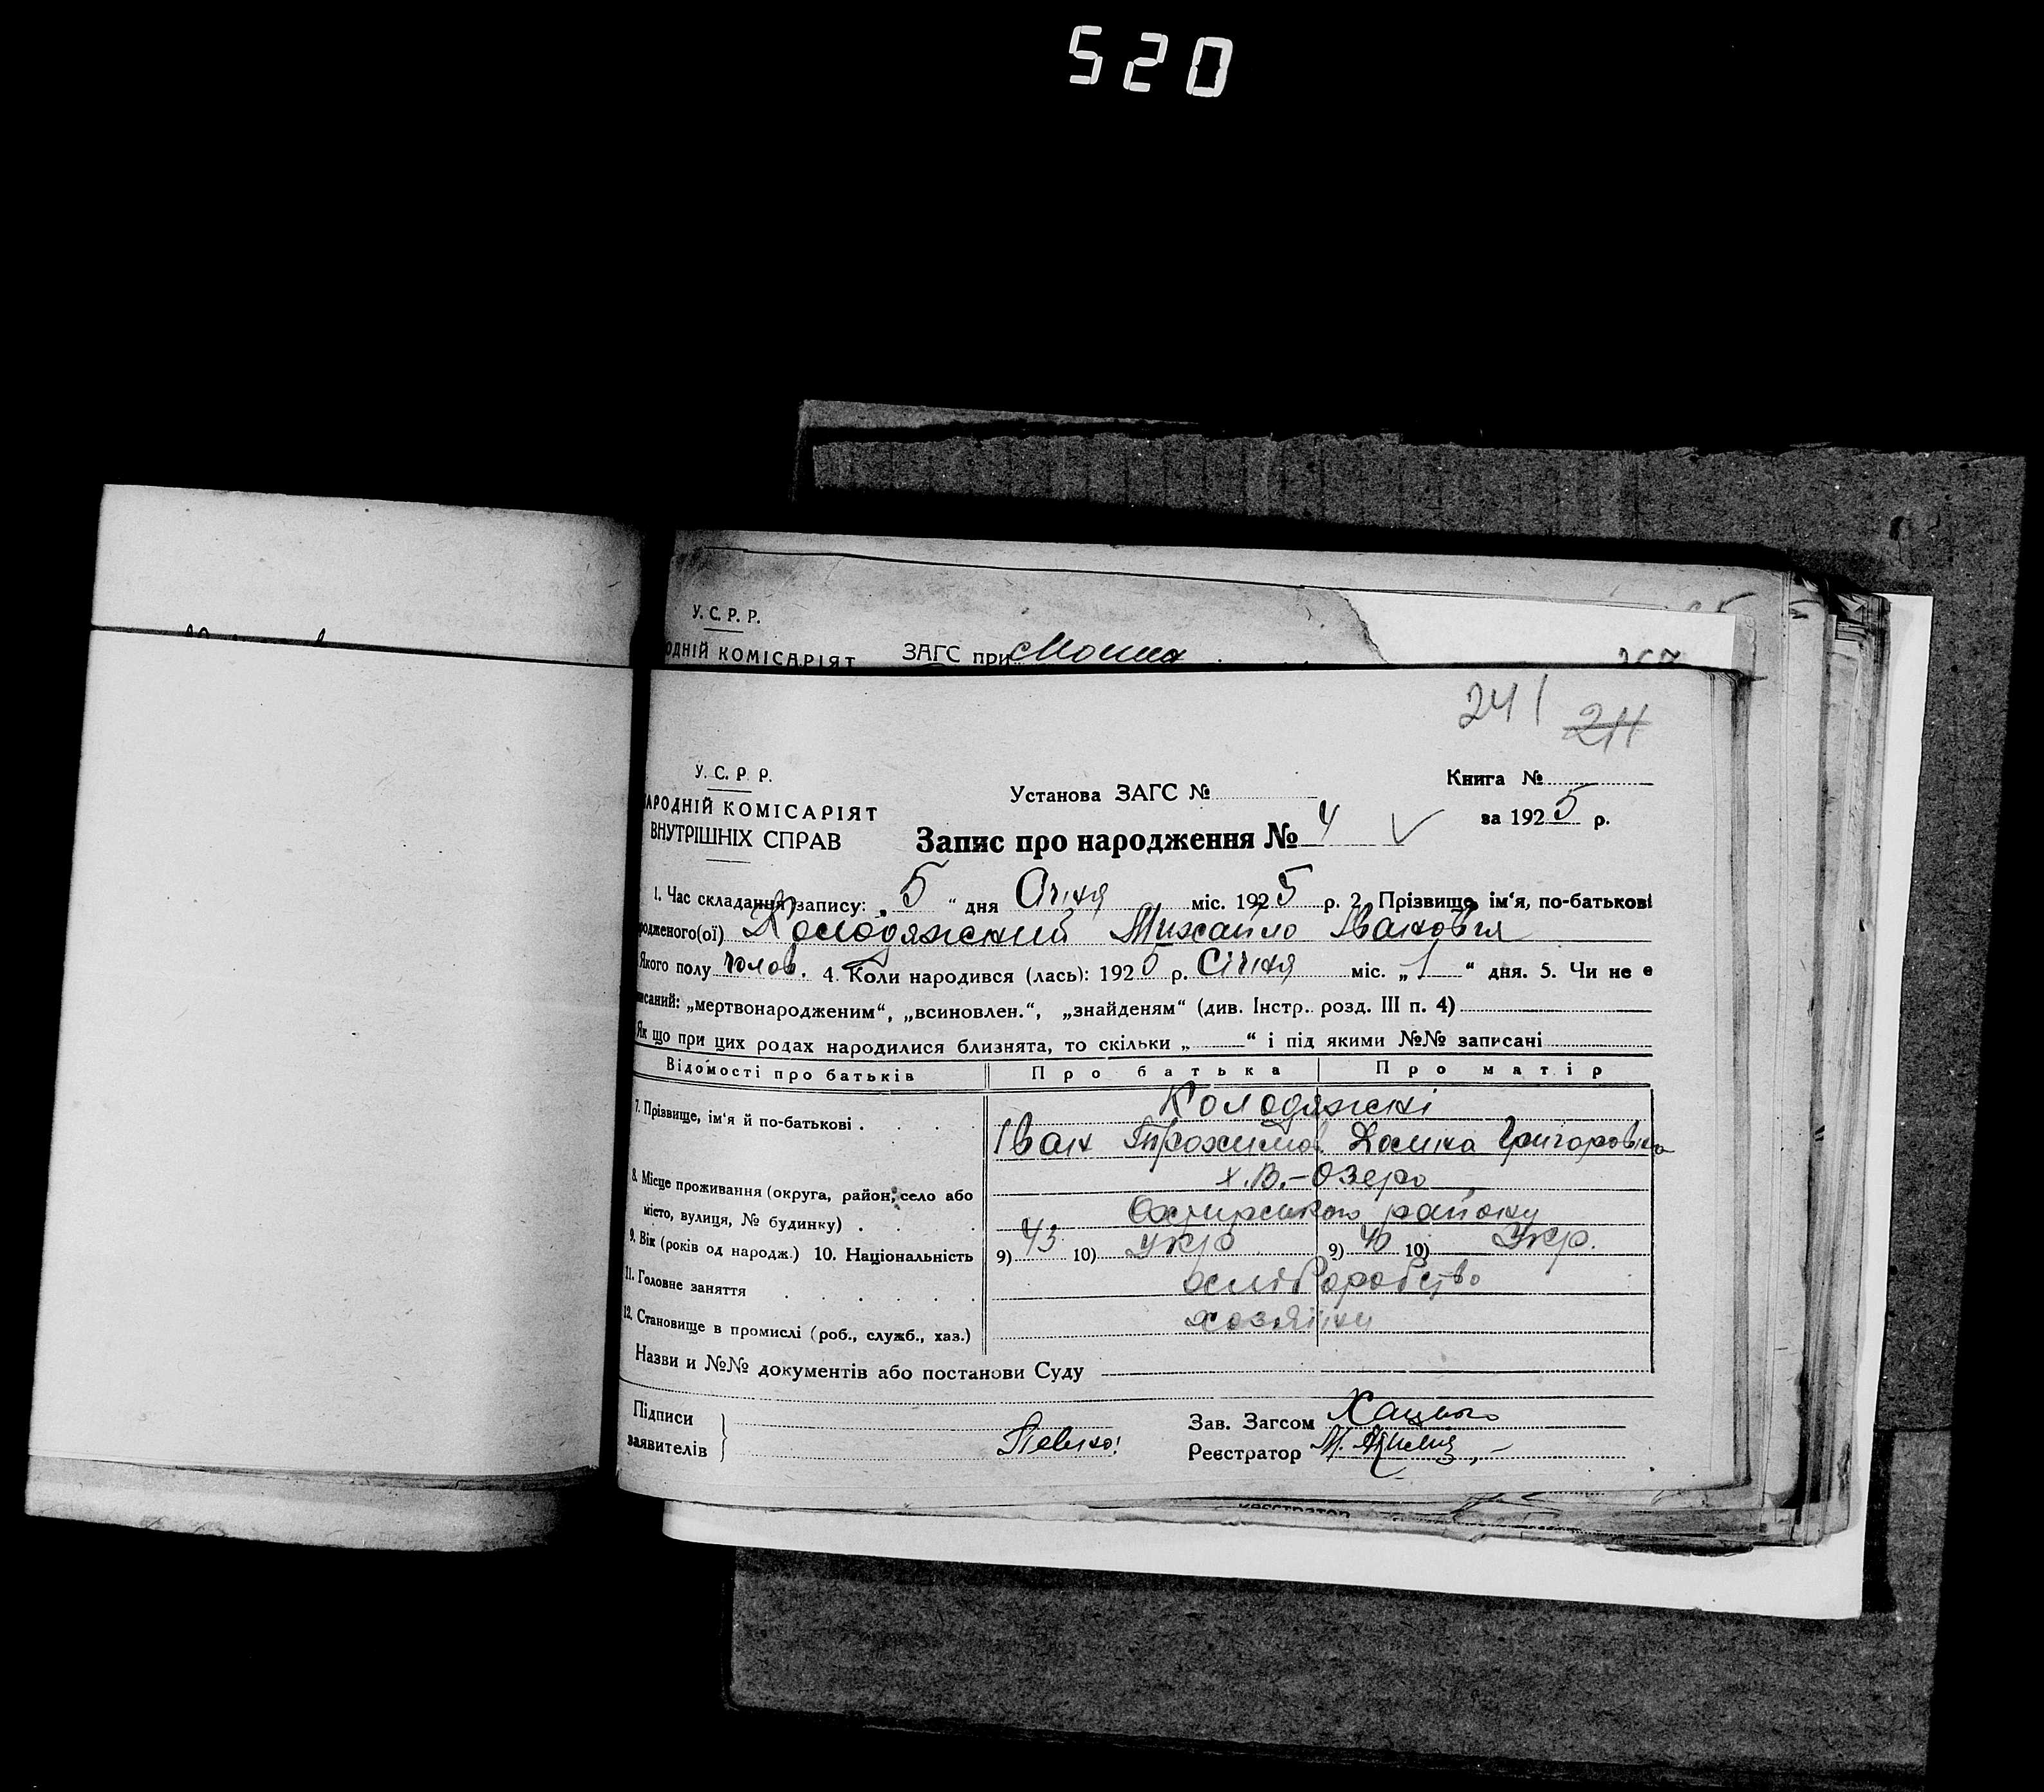 520
У. С. Р. Р.
ОДНІЙ КОМІСАРІЯТ ЗАГС при
267
241 211
У. С. Р. Р.
НАРОДНІЙ КОМІСАРІЯТ
ВНУТРІШНІХ СПРАВ
Установа ЗАГС №
Книга №
за 1925 р.
Запис про народження № 4
1. Час складання запису: „5“ дня Січня міс. 1925 р. 2. Прізвище, ім'я, по-батькові
родженого(ої) Колодяжский Михайло Іванович
Якого полу чолов. 4. Коли народився (лась): 1925 р. Січня міс. „1“ дня. 5. Чи не є
писаний: „мертвонародженим“, „всиновлен.“, „знайденям“ (див. Інстр. розд. III п. 4)
Як що при цих родах народилися близнята, то скільки „ “ і під якими №№ записані
Відомості про батьків Про батька Про матір
7. Прізвище, ім'я й по-батькові . . . . Колодяжскі
Іван Трохимов. Домка Григоровна
8. Місце проживання (округа, район, село або Х. В.-Озеро
місто, вулиця, № будинку) . . . . Охтирського району
9. Вік (років од народж.) 10. Національність 9) 43 10) Укр 9) 40 10) Укр.
11. Головне заняття . . . . . . хліборобство
12. Становище в промислі (роб., служб., хаз.) хозяїни
Назви и №№ документів або постанови Суду
Підписи
заявителів
Зав. Загсом
Реєстратор М.
Реєстратор